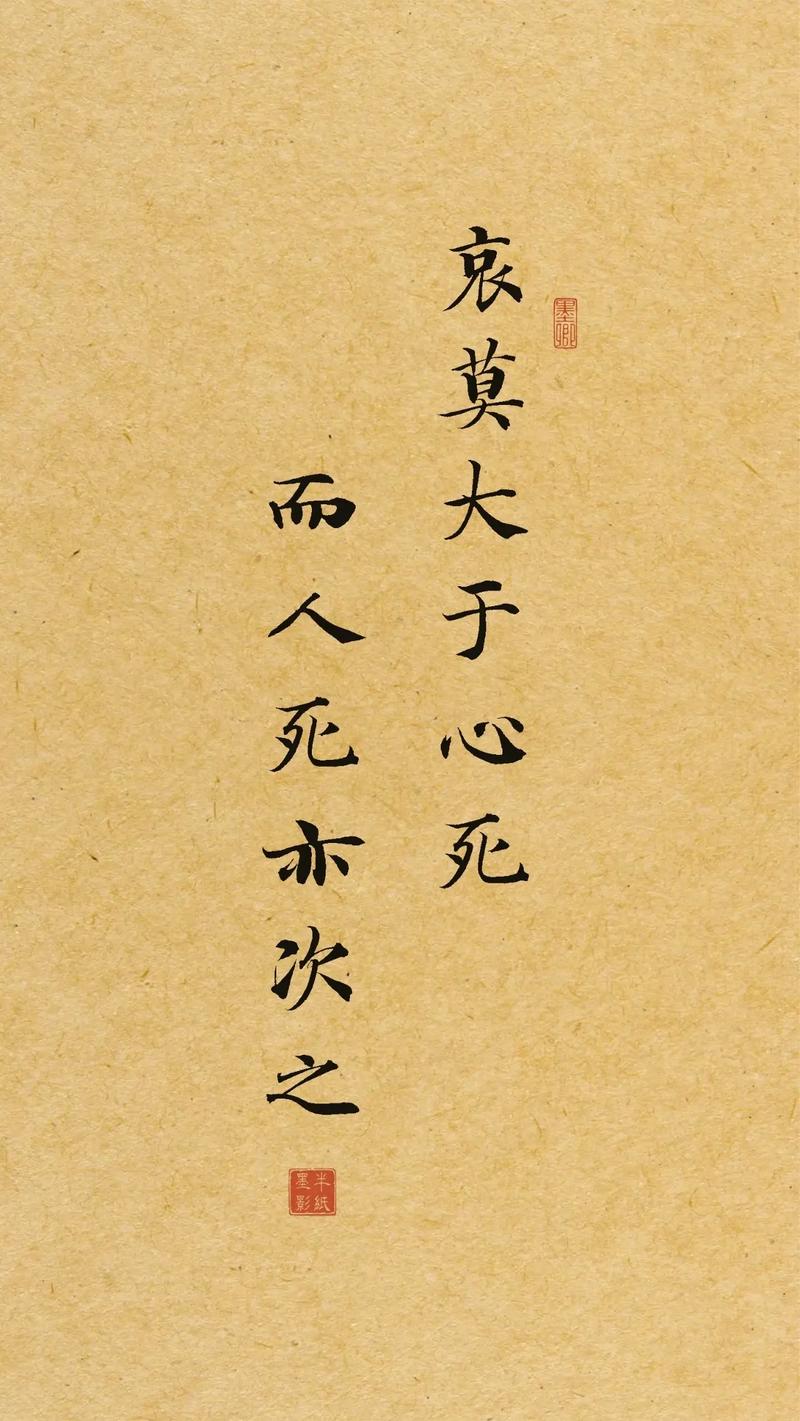 哀莫大于心死
墨卿
而人死亦次之
半紙
墨影